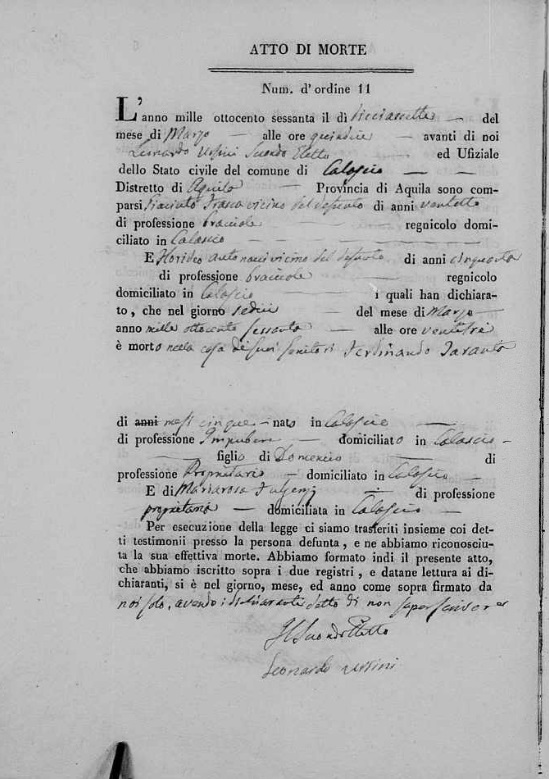 ATTO DI MORTE
Num. d'ordine 11
L'anno mille ottocento sessanta il dì diciassette — del
mese di Marzo — alle ore quindici — avanti di noi
Leonardo Ussini Secondo Eletto — ed Ufiziale
dello Stato civile del comune di Calascio — —
Distretto di Aquila — Provincia di Aquila sono com-
parsi vicino del defunto di anni ventotto
di professione bracciale — regnicolo domi-
ciliato in Calascio —
E vicino del defunto di anni cinquanta
di professione bracciale — regnicolo
domiciliato in Calascio — i quali han dichiara-
to, che nel giorno sedici — del mese di Marzo —
anno mille ottocento sessanta — alle ore ventitre
è morto nella casa de' suoi genitori Ferdinando Taranta
di anni mesi cinque — nato in Calascio —
di professione Impubere — domiciliato in Calascio —
— figlio di Domenico — di
professione Proprietario — domiciliato in Calascio —
E di Mariarosa — di professione
proprietaria — domiciliata in Calascio —
Per esecuzione della legge ci siamo trasferiti insieme coi det-
ti testimonii presso la persona defunta, e ne abbiamo riconosciu-
ta la sua effettiva morte. Abbiamo formato indi il presente atto,
che abbiamo iscritto sopra i due registri, e datane lettura ai di-
chiaranti, si è nel giorno, mese, ed anno come sopra firmato da
noi solo, avendo i dichiaranti detto di non saper scrivere
Il Secondo Eletto
Leonardo Ussini